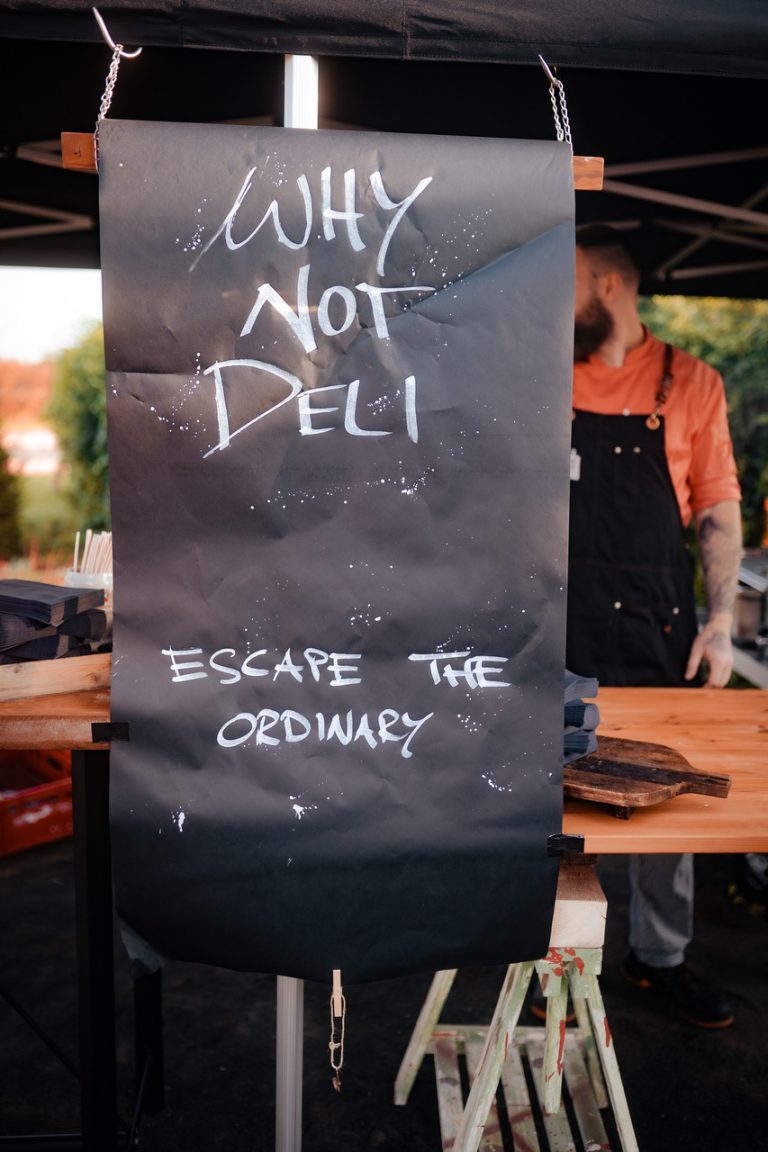 WHY
NOT
DELI
ESCAPE THE
ORDINARY